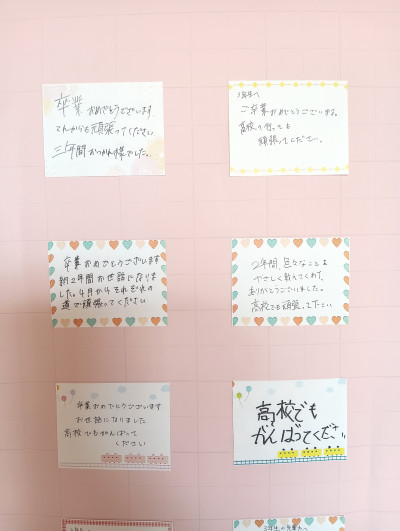 卒業 おめでとうございます
これからも頑張ってください
三年間おつかれ様でした。
3年生へ
ご卒業おめでとうございます。
高校に行っても
頑張ってください。
卒業おめでとうございます
約2年間お世話になりま
した。4月からそれぞれの
道で頑張ってください
2年間、色々なことを
やさしく教えてくれて、
ありがとうございました。
高校でも頑張って下さい
卒業おめでとうございます
お世話になりました
高校でもがんばって
ください
高校でも
がんばってください